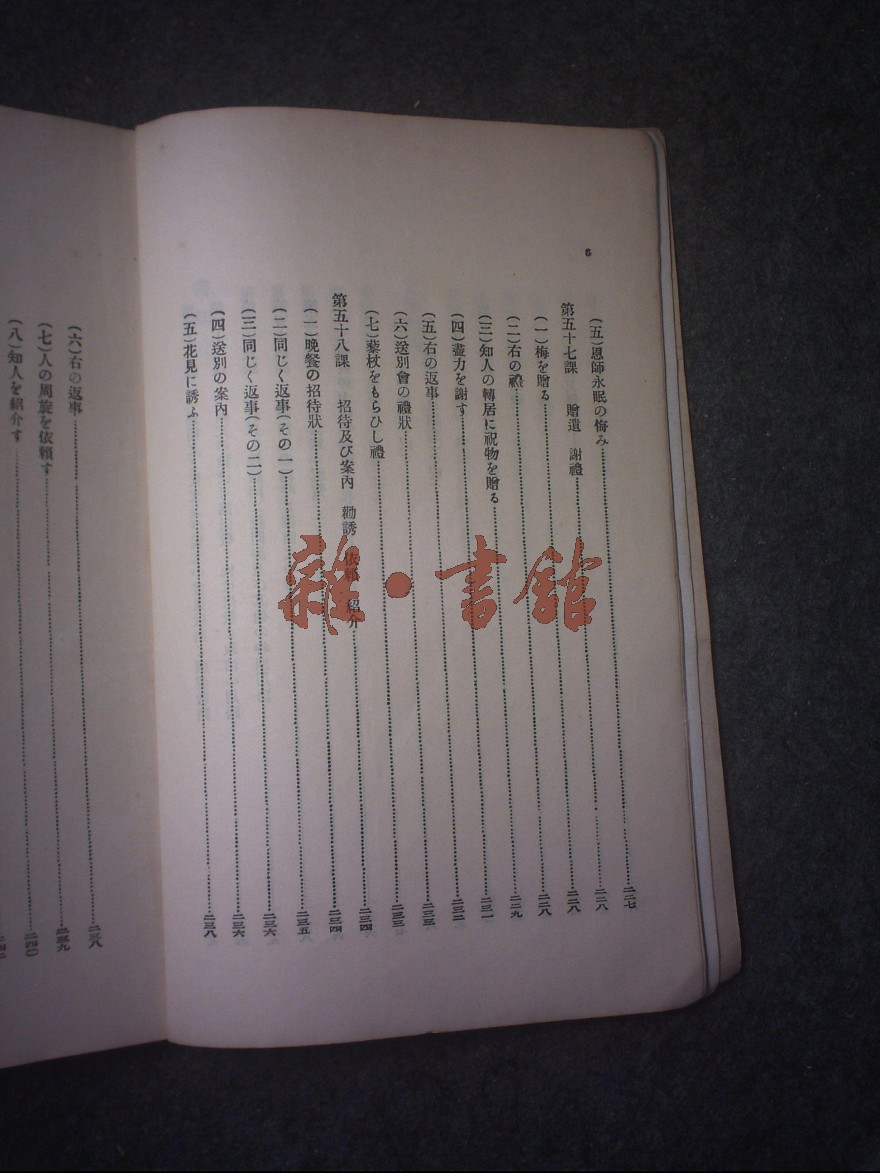 6
(五)恩師永眠の悔み………二二七
第五十七課 贈遺 謝禮………二二八
(一)梅を贈る………二二八
(二)右の禮………二二八
(三)知人の轉居に祝物を贈る………二二九
(四)盡力を謝す………二三一
(五)右の返事………二三二
(六)送別會の禮狀………二三三
(七)藜杖をもらひし禮………二三三
第五十八課 招待及び案內 勸誘 依賴 紹介………二三四
(一)晩餐の招待狀………二三四
(二)同じく返事(その一)………二三五
(三)同じく返事(その二)………二三六
(四)送別の案內………二三六
(五)花見に誘ふ………二三八
(六)右の返事………二三八
(七)人の周旋を依賴す………二三九
(八)知人を紹介す………二四〇
雜·書館